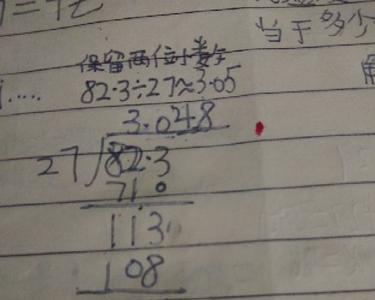 当于多少
保留两位小数
82.3÷27≈3.05
3.048
27 82.3
71.0
113
108